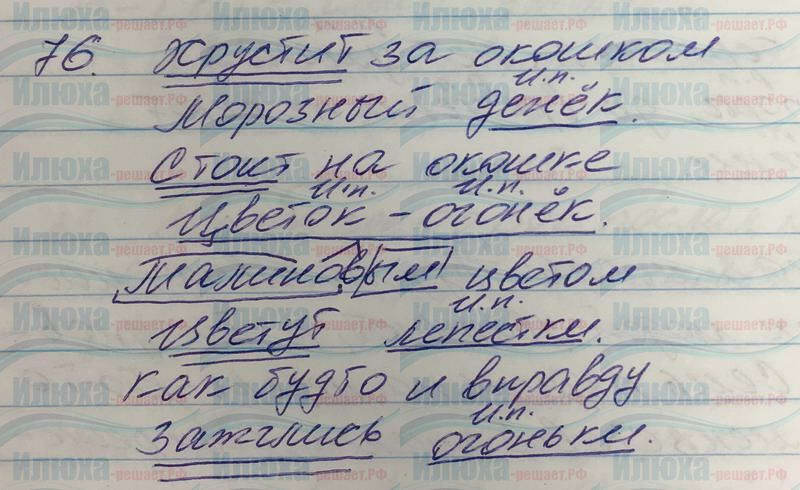 76. Хрустит за окошком
и.п.
Морозный денёк.
Стоит на окошке
и.п. и.п.
Цветок - огонёк.
Малиновым цветом
и.п.
Цветут лепестки.
Как будто и вправду
и.п.
Зажглись огоньки.